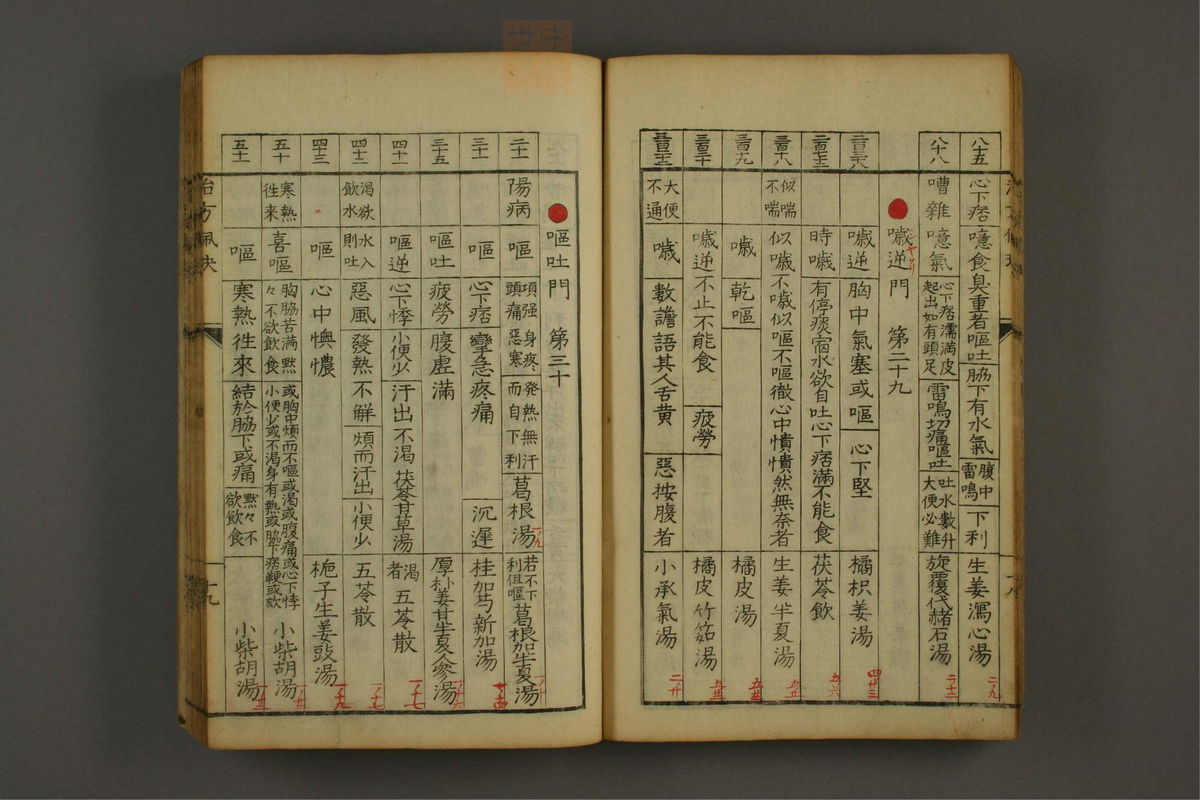 八十五 心下痞 噫食臭重者嘔吐 脇下有水氣 腹中雷鳴 下利 生姜瀉心湯 二九
八十八 嘈雜 噫氣 心下痞濡満皮起出如有頭足 雷鳴切痛嘔吐 吐水數升大便必難 旋覆代赭石湯
噦逆門 第二十九
噦逆 胸中氣塞或嘔 心下堅 橘枳姜湯
時噦 有停痰宿水欲自吐心下痞滿不能食 茯苓飲 五六
似喘不喘 似噦不噦似嘔不嘔徹心中憒憒然無奈者 生姜半夏湯
噦 乾嘔 橘皮湯
噦逆 不止不能食 疲勞 橘皮竹筎湯
大便不通 噦 數譫語其人舌黄 惡按腹者 小承氣湯
治方佩訣
嘔吐門 第三十
二十一 陽病 嘔 項强頭痛 身疼惡寒 発熱無汗而自下利 葛根湯 若不下利但嘔 葛根加半夏湯
三十一 嘔 心下痞 攣急疼痛 沉遲 桂加芍新加湯
三十五 嘔吐 疲勞 腹虚滿 厚朴姜甘半夏人參湯
四十一 嘔逆 心下悸 小便少 汗出不渇 茯苓甘草湯 渇者 五苓散
四十二 渇欲飲水 水入則吐 惡風 發熱不解 煩而汗出 小便少 五苓散
四十三 嘔 心中懊憹 梔子生姜豉湯
五十 寒熱徃来 喜嘔 胸脇苦満黙々不欲飲食 或胸中煩而不嘔或渇或腹痛或心下悸小便少或不渇身有熱或脇下痞鞕或欬 小柴胡湯
五十一 嘔 寒熱徃來 結於脇下或痛 黙々不欲飲食 小柴胡湯
治方佩訣
十九